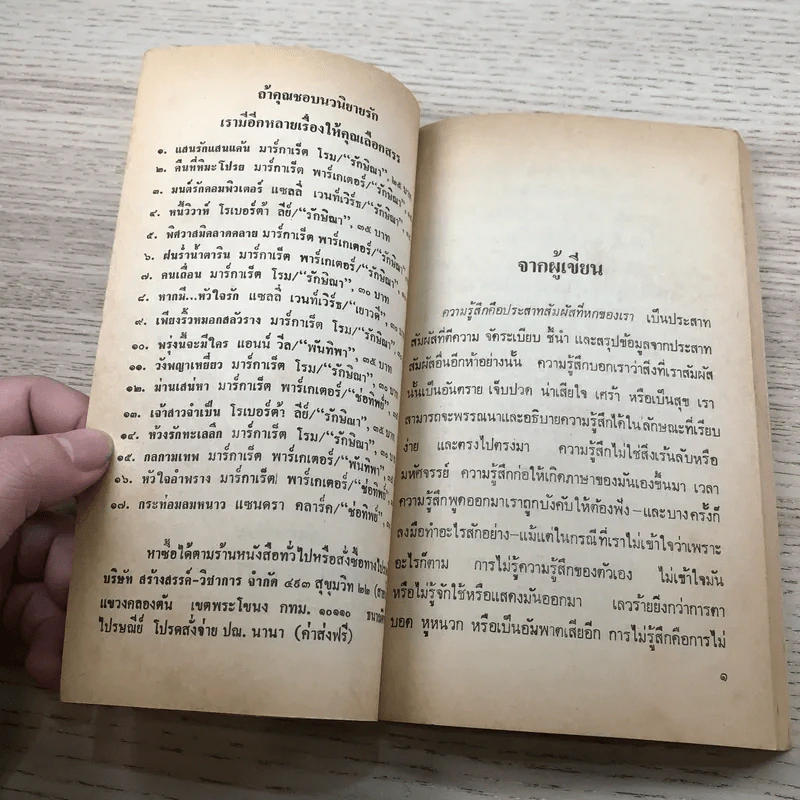 ถ้าคุณชอบนวนิยายรัก
เรามีอีกหลายเรื่องให้คุณเลือกสรร
๑. แสนรักแสนแค้น มาร์กาเร็ต โรม/“รักษิณา”, ๒๕ บาท
๒. คืนที่หิมะโปรย มาร์กาเร็ต พาร์เกเตอร์/“รักษิณา”,
๓. มนต์รักคอมพิวเตอร์ แซลลี่ เวนท์เวิร์ธ/“รักษิณา”,
๔. หนี้วิวาห์ โรเบอร์ต้า ลีย์/“รักษิณา”, ๓๕ บาท
๕. พิศวาสมิคลาดคลาย มาร์กาเร็ต พาร์เกเตอร์/“รักษิณา”,
๖. ฝนร่ำน้ำตาริน มาร์กาเร็ต พาร์เกเตอร์/“รักษิณา”,
๗. คนเถื่อน มาร์กาเร็ต โรม/“รักษิณา”, ๓๐ บาท
๘. หากมี...หัวใจรัก แซลลี่ เวนท์เวิร์ธ/“เยาวดี”,
๙. เพียงรั้วหมอกสลัวราง มาร์กาเร็ต โรม/“รักษิณา”,
๑๐. พรุ่งนี้จะมีใคร แอนน์ วีล/“พันทิพา”, ๓๕ บาท
๑๑. วังพญาเหยี่ยว มาร์กาเร็ต โรม/“รักษิณา”, ๓๐ บาท
๑๒. ม่านเสน่หา มาร์กาเร็ต พาร์เกเตอร์/“ช่อทิพย์”,
๑๓. เจ้าสาวจำเป็น โรเบอร์ต้า ลีย์/“รักษิณา”,
๑๔. ห้วงรักทะเลลึก มาร์กาเร็ต โรม/“รักษิณา”,
๑๕. กลกามเทพ มาร์กาเร็ต พาร์เกเตอร์/“พันทิพา”,
๑๖. หัวใจอำพราง มาร์กาเร็ต พาร์เกเตอร์/“ช่อทิพย์”,
๑๗. กระท่อมลมหนาว แซนดรา คลาร์ค/“ช่อทิพย์”,
หาซื้อได้ตามร้านหนังสือทั่วไปหรือสั่งซื้อทาง
บริษัท สร้างสรรค์-วิชาการ จำกัด ๔๙๓ สุขุมวิท ๒๒
แขวงคลองตัน เขตพระโขนง กทม. ๑๐๑๑๐
ไปรษณีย์ โปรดสั่งจ่าย ปณ. นานา (ค่าส่งฟรี)
จากผู้เขียน
ความรู้สึกคือประสาทสัมผัสที่หกของเรา เป็นประสาท
สัมผัสที่ตีความ จัดระเบียบ ชี้นำ และสรุปข้อมูลจากประสาท
สัมผัสอื่นอีกห้าอย่างนั้น ความรู้สึกบอกเราว่าสิ่งที่เราสัมผัส
นั้นเป็นอันตราย เจ็บปวด น่าเสียใจ เศร้า หรือเป็นสุข เรา
สามารถจะพรรณนาและอธิบายความรู้สึกได้ในลักษณะที่เรียบ
ง่าย และตรงไปตรงมา ความรู้สึกไม่ใช่สิ่งเร้นลับหรือ
มหัศจรรย์ ความรู้สึกก่อให้เกิดภาษาของมันเองขึ้นมา เวลา
ความรู้สึกพูดออกมาเราถูกบังคับให้ต้องฟัง–และบางครั้งก็
ลงมือทำอะไรสักอย่าง–แม้แต่ในกรณีที่เราไม่เข้าใจว่าเพราะ
อะไรก็ตาม การไม่รู้ความรู้สึกของตัวเอง ไม่เข้าใจมัน
หรือไม่รู้จักใช้หรือแสดงมันออกมา เลวร้ายยิ่งกว่าการตา
บอด หูหนวก หรือเป็นอัมพาตเสียอีก การไม่รู้สึกคือการไม่
๑